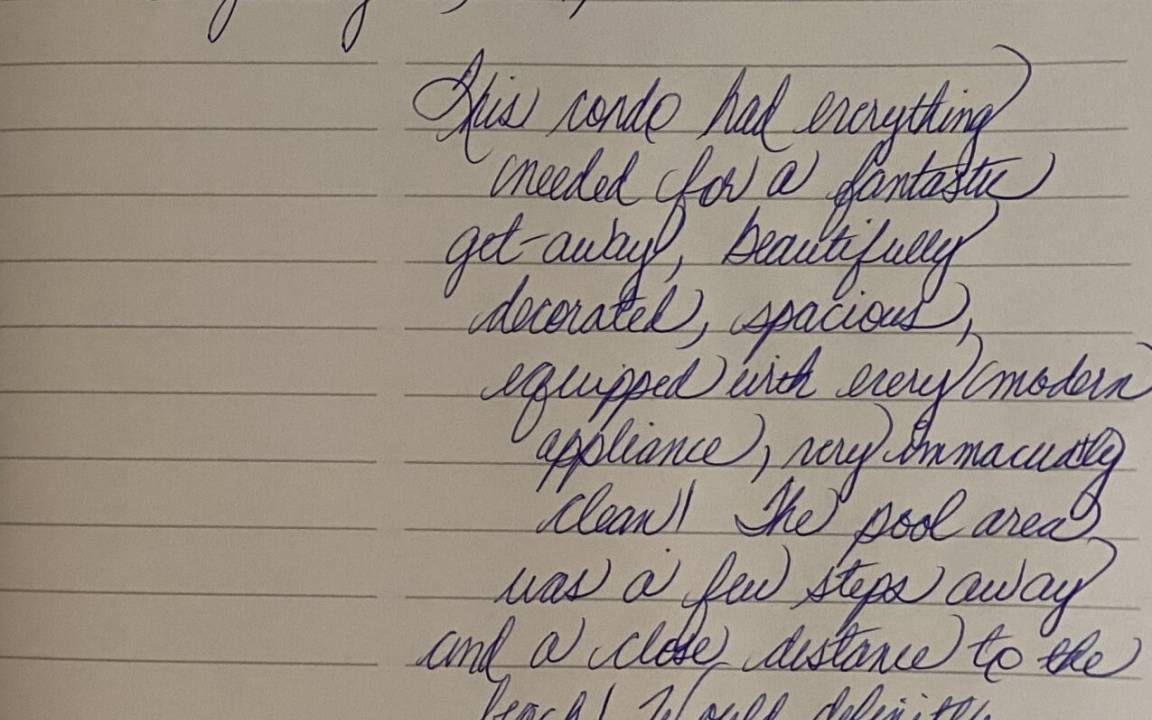 This condo had everything
needed for a fantastic
get-away, beautifully
decorated, spacious,
equipped with every modern
appliance, very immaculatly
clean! The pool area
was a few steps away
and a close distance to the
beach! Would definitely